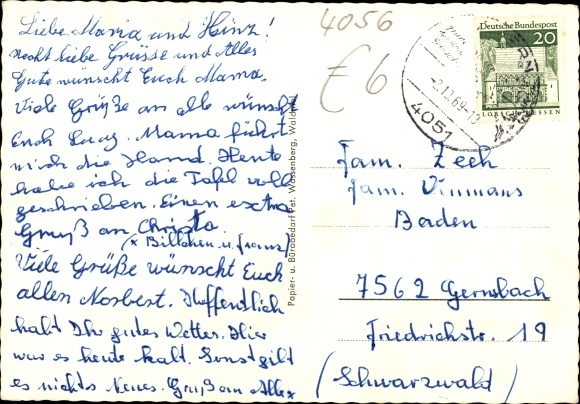 Liebe Maria und Heinz!
recht liebe Grüsse und Alles
Gute wünscht Euch Mama.
Viele Grüße an alle wünscht
Euch Lucy. Mama führt
mich die Hand. Heute
habe ich die Tafel voll
geschrieben. Einen extra
Gruß an Christa
(x Billchen u. Franz)
Viele Grüße wünscht Euch
allen Norbert. Hoffentlich
habt Ihr gutes Wetter. Hier
war es heute kalt. Sonst gibt
es nichts Neues. Gruß an Alle x
Papier- u. Bürobedarf Pet. Wassenberg, Waldniel
4056
€ 6
Deutsche Bundespost
20
LORSCH HESSEN
4051
Fam. Zech
Fam.
Baden
7562 Gernsbach
Friedrichstr. 19
(Schwarzwald)